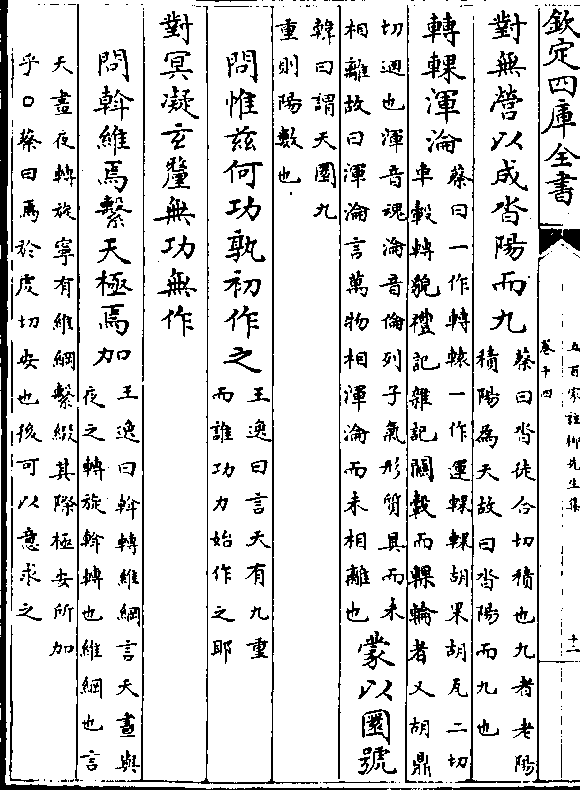 欽定四庫全書
五百家註柳先生集
卷十四
十二
對無營以成沓陽而九
蔡曰沓徒合切積也九者老陽
積陽為天故曰沓陽而九也
轉輠渾淪
蔡曰一作轉轅一作運輠輠胡果胡瓦二切
車轂轉貌禮記雜記關轂而輠輪者又胡鼎
切迴也渾音魂淪音倫列子氣形質具而未
相離故曰渾淪言萬物相渾淪而未相離也
蒙以圜號
韓曰謂天圜九
重則陽數也
問惟茲何功孰初作之
王逸曰言天有九重
而誰功力始作之耶
對冥凝玄釐無功無作
問斡維焉繫天極焉加
王逸曰斡轉維綱言天晝與
夜之轉旋斡轉也維綱也言
天晝夜轉旋寧有維綱繫綴其際極安所加
乎○蔡曰焉於虔切安也後可以意求之